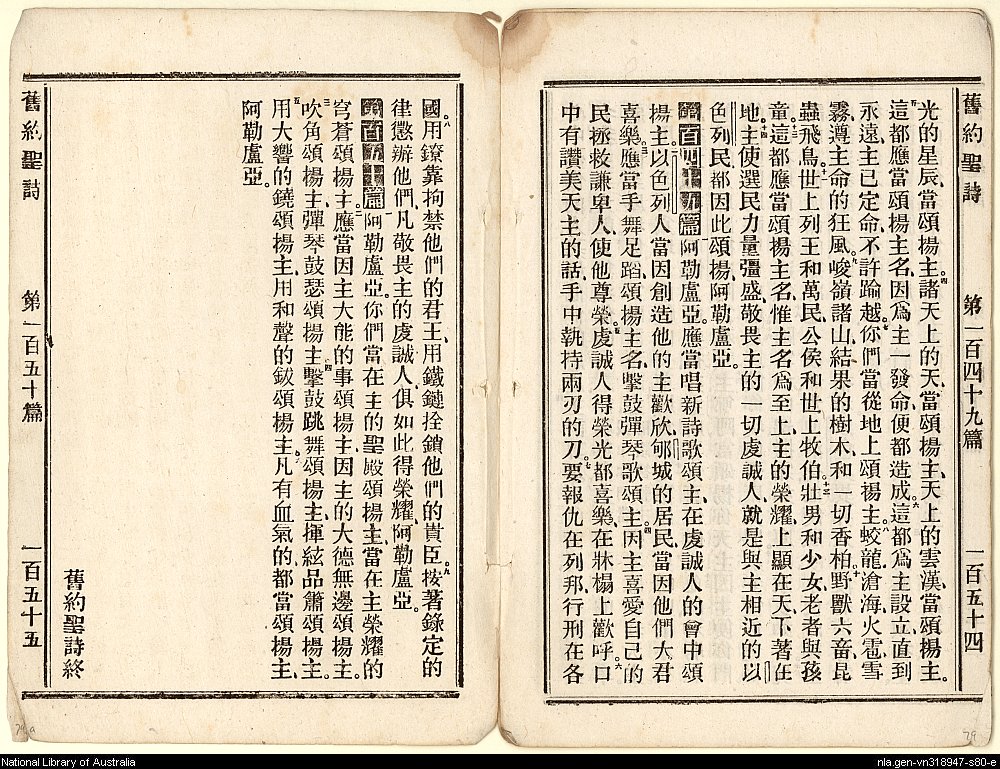 舊約聖詩 第一百四十九篇 一百五十四
光的星辰、當頌揚主。四諸天上的天、當頌揚主、天上的雲漢、當頌揚主。
五這都應當頌揚主名、因爲主一發命便都造成。六這都爲主設立、直到
永遠、主已定命不許踰越。七你們當從地上頌揚主、蛟龍滄海、八火雹雪
霧、遵主命的狂風、九峻嶺諸山、結果的樹木、和一切香柏、十野獸六畜昆
蟲飛鳥、十一世上列王和萬民、公侯和世上牧伯、十二壯男和少女、老者與孩
童、十三這都應當頌揚主名、惟主名爲至上、主的榮耀、上顯在天、下著在
地、十四主使選民力量彊盛、敬畏主的一切虔誠人、就是與主相近的以
色列民、都因此頌揚、阿勒盧亞。
第百四十九篇 一阿勒盧亞。應當唱新詩歌頌主、在虔誠人的會中頌
揚主。二以色列人當因創造他的主歡欣、郇城的居民、當因他們大君
喜樂、三應當手舞足蹈頌揚主名、擊鼓彈琴歌頌主。四因主喜愛自己的
民、拯救謙卑人、使他尊榮。五虔誠人得榮光都喜樂、在牀榻上歡呼、六口
中有讚美天主的話、手中執持兩刃的刀。七要報仇在列邦、行刑在各
國、八用鐐靠拘禁他們的君王、用鐵鏈拴鎖他們的貴臣。九按著錄定的
律懲辦他們、凡敬畏主的虔誠人、俱如此得榮耀、阿勒盧亞。
第百五十篇 一阿勒盧亞。你們當在主的聖殿頌揚主、當在主榮耀的
穹蒼頌揚主。二應當因主大能的事頌揚主、因主的大德無邊頌揚主。
三吹角頌揚主、彈琴鼓瑟頌揚主、四擊鼓跳舞頌揚主、揮絃品簫頌揚主、
五用大響的鐃頌揚主、用和聲的鈸頌揚主、六凡有血氣的都當頌揚主、
阿勒盧亞。
舊約聖詩終
舊約聖詩 第一百五十篇 一百五十五
79a
79
National Library of Australia
nla.gen-vn318947-s80-e